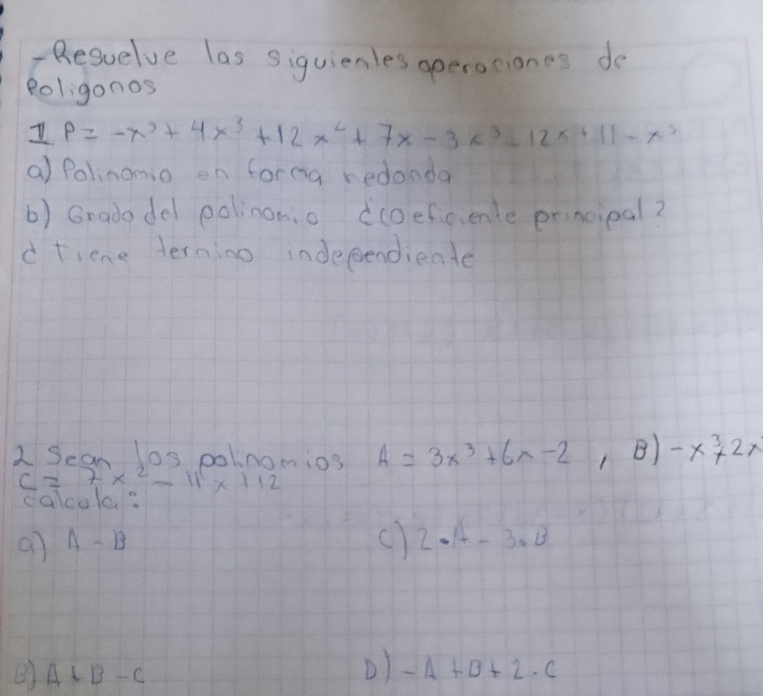 -Resuelve las siguientes operaciones de
Poligonos
1 P = -x³ + 4x³ + 12x² + 7x - 3x³ - 12x + 11 - x³
a) Polinomio en forma redonda
b) Grado del polinomio ¿coeficiente principal?
¿ Tiene termino independiente
2 Sean los polinomios A = 3x³ + 6x - 2 , B) -x³ + 2x
C = 7x² - 11x + 12
calcola:
a) A - B
C) 2·A - 3·B
B) A + B - C
D) -A + B + 2·C